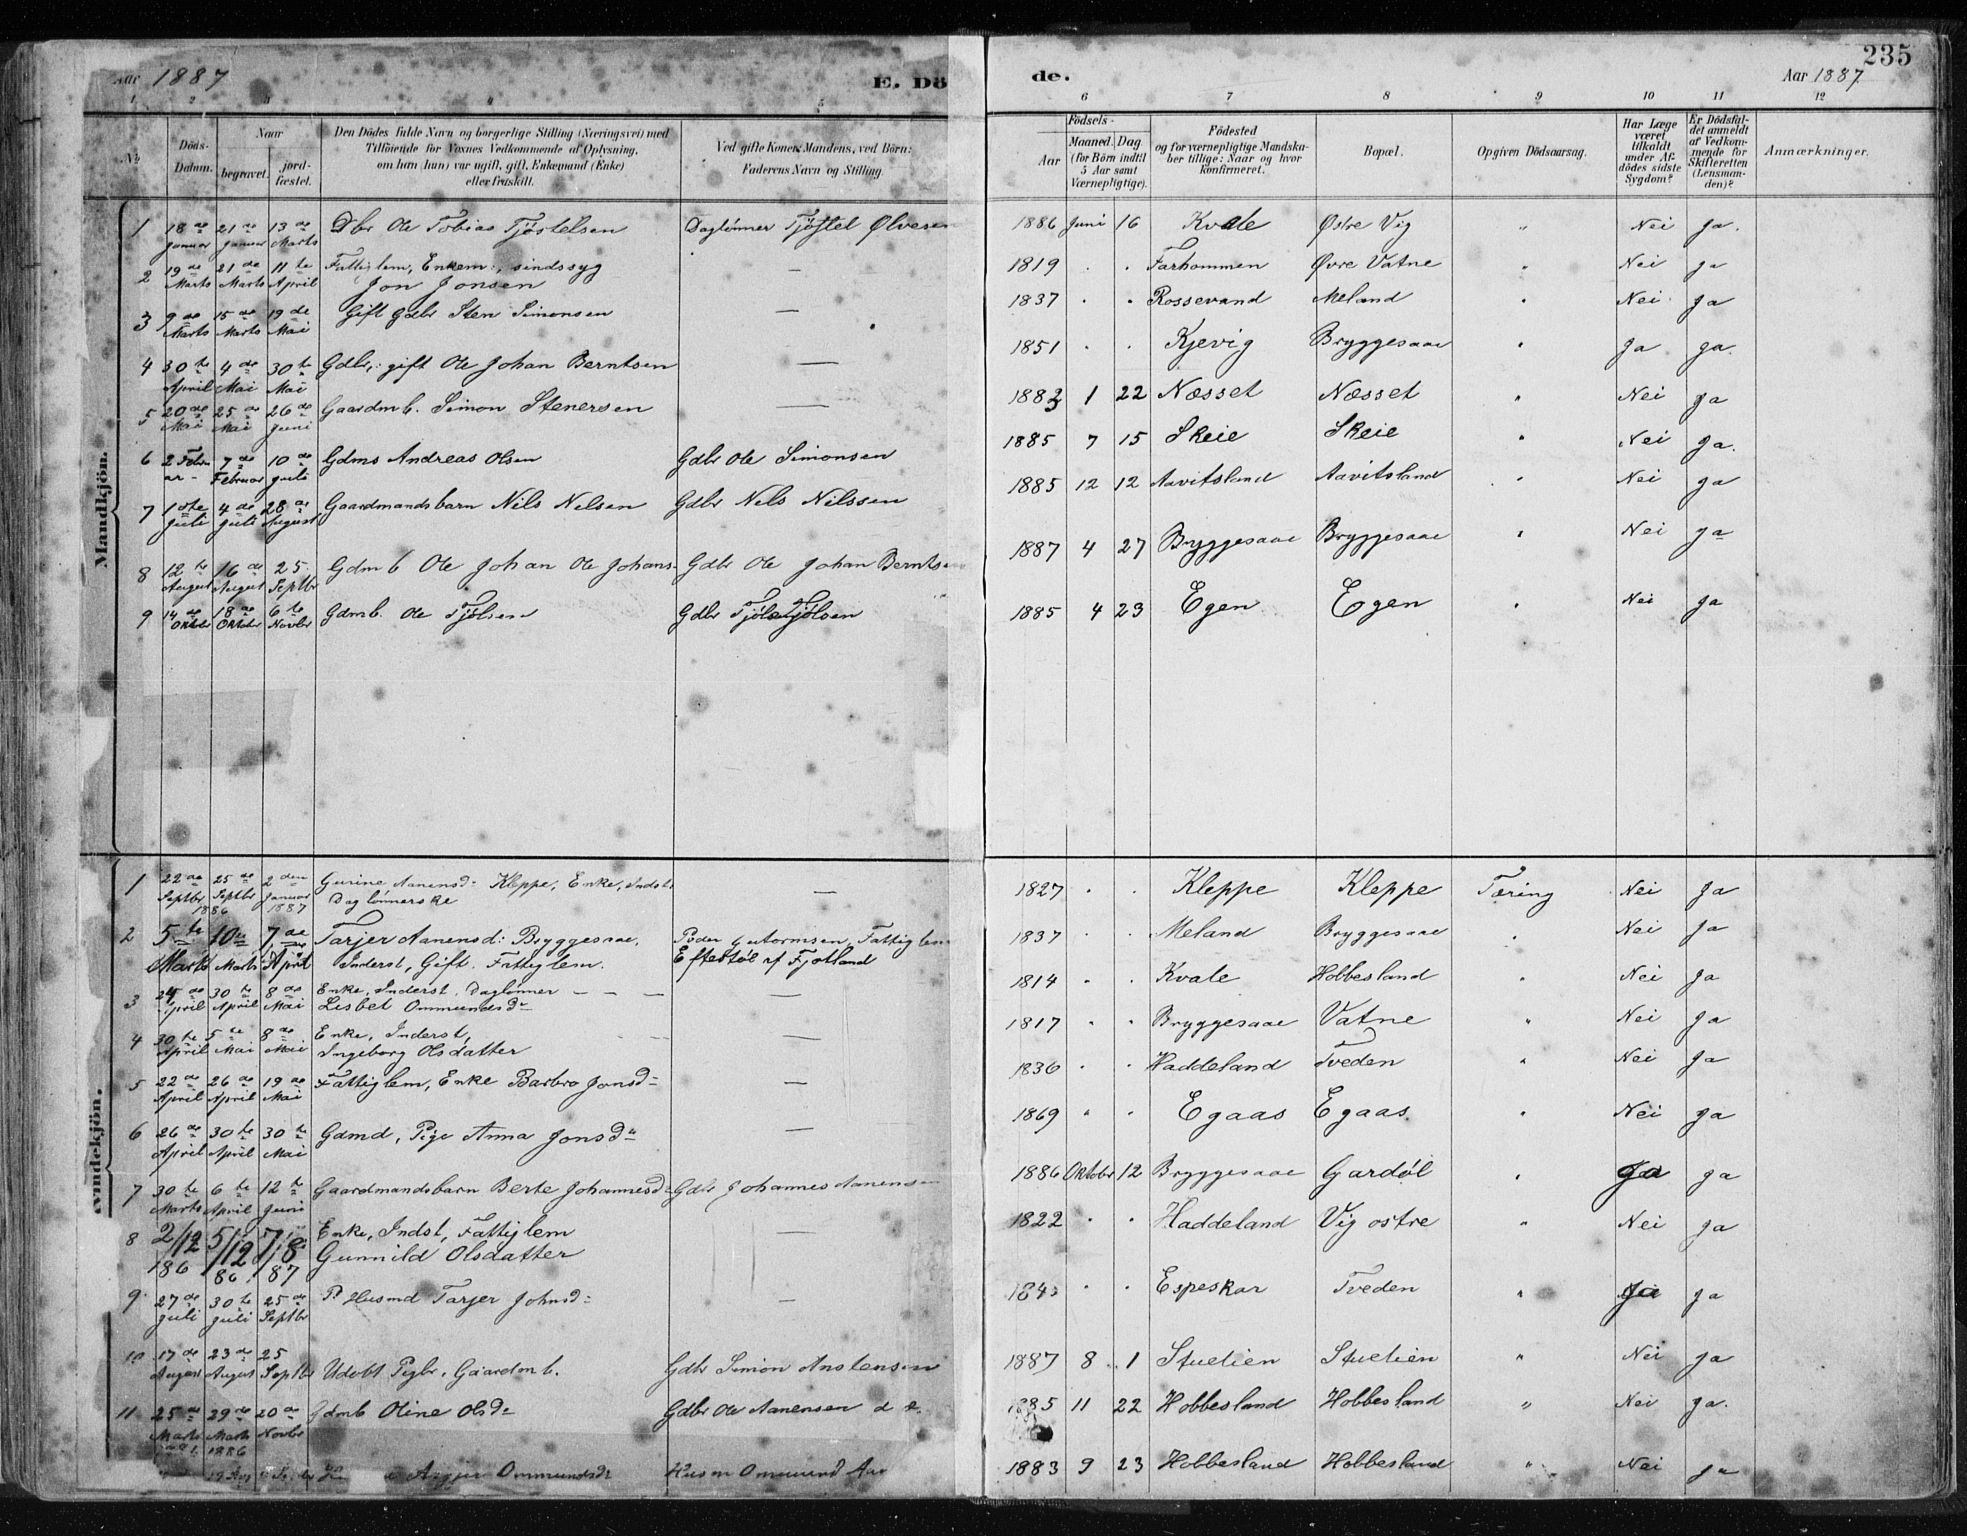 Aar 1887
E. Dö
de.
235
Aar 1887.
1 2 3 4 5 6 7 8 9 10 11 12
No
Döds-
Datum.
Naar
begravet.
jord-
fæstet.
Den Dödes fulde Navn og borgerlige Stilling (Næringsvei) med
Tilföiende for Voxnes Vedkommende af Oplysning,
om han (hun) var ugift, gift, Enkemand (Enke)
eller fraskilt.
Ved gifte Koner: Mandens, ved Börn:
Faderens Navn og Stilling.
Födsels-
Aar
Maaned. Dag
(for Börn indtil
5 Aar samt
Værnepligtige).
Födested
og for værnepligtige Mandska-
ber tillige: Naar og hvor
konfirmeret.
Bopæl.
Opgiven Dödsaarsag.
Har Læge
været
tilkaldt
under Af-
dödes sidste
Sygdom?
Er Dödsfal-
det anmeldt
af Vedkom-
mende for
Skifteretten
(Lensman-
den)?
Anmærkninger.
Mandkjön.
1 18de Januar 21de Januar 13de Marts Dbr Ole Tobias Tjøstelsen Daglønner Tjøstel Ølvesen 1886 Juni 16 Kvale Østre Vig " Nei Ja.
2 19de Marts 21de Marts 11te April Fattiglem, Enkem:, sindssyg
Jon Jonsen — 1819 . . Farhommen Øvre Vatne " Nei Ja
3 9de Marts 15de Marts 19de Mai Gift Gdbr Sten Simonsen — 1837 . . Rossevand Meland " Nei Ja
4 30te April 4de Mai 30te Mai Gdbr, gift Ole Johan Berntsen — 1851 . . Kjevig Bryggesaae " Ja Ja.
5 20de Mai 25de Mai 26de Juni Gaardmb. Simon Stenersen — 1883 1 22 Næsset Næsset " Nei Ja
6 2 Febru
ar 7de Februar 10de Juli Gdms Andreas Olsen Gdbr Ole Simonsen 1885 7 15 Skeie Skeie " Nei Ja.
7 1ste Juli 4de Juli 28de August Gaardmandsbarn Nils Nilsen Gdbr Nils Nilssen 1885 12 12 Aavitsland Aavitsland " Nei Ja
8 12te August 16de August 25 Septbr Gdmb Ole Johan Ole Johans- Gdbr Ole Johan Berntsen 1887 4 27 Bryggesaae Bryggesaae " Nei Ja
9 14de Oktbr 18de Oktober 6te Novbr Gdmb. Ole Tjølsen Gdbr Tjøls Tjølsen 1885 4 23 Egen Egen " Nei Ja
vindekjön.
1 22de Septbr 25de Septbr 1886 2den Januar 1887 Gurine Aanensd: Kleppe, Enke, Indst.
Daglønnerske — 1827 . . Kleppe Kleppe Tæring Nei Ja
2 5te Marts 10de Marts 7de April Tarjer Aanensd: Bryggesaae,
Inderst, Gift. Fattiglem. Peder Gutormsen, Fattiglem
Eftestøl af Fjotland 1837 . . Meland Bryggesaae " Nei Ja
3 24de April 30te April 8de Mai Enke, Inderst, Daglønner — — —
Lisbet Ommundsd — 1814 . . Kvale Hobbesland Nei Ja
4 30te April 5te Mai 8de Mai Enke, Inderst,
Ingeborg Olsdatter — 1817 . . Bryggesaae Vatne " Nei Ja
5 22de April 26de April 19de Mai Fattiglem, Enke Barbro Jonsd: — 1836 . . Haddeland Tveden " Nei Ja
6 26de April 30te April 30te Mai Gdmd, Pige Anna Jonsd: — 1869 " . Egaas Egaas. " Nei Ja
7 30te Marts 6te April 12te Juni Gaardmandsbarn Berte Johannesd Gdbr Johannes Aanensen 1886 Oktober 12 Bryggesaae Gardøl " Ja Ja
8 2/12 186 5/12 86 7/8 87 Enke, Indst, Fattiglem
Gunnild Olsdatter — 1822 . . Haddeland Vig østre " Nei Ja
9 27de Juli 30te Juli 25de Septbr Husmd Tarjer Johnsd: — . . Espeskar Tveden " Ja Ja
10 17de August 23de August 25 Septbr Udøbt Pigbr, Gaardmb. Gdbr Simon Anstensen 1887 8 1 Stuelien Stuelien " Nei Ja
11 25de Marts 29de Marts 1886 20de Novbr Gdmb Oline Olsd: Gdbr Ole Aanensen 1885 11 22 Hobbesland Hobbesland " Nei Ja.
Ommundsdr Husm Ommund 1883 9 23 Hobbesland Hobbesland " Nei Ja